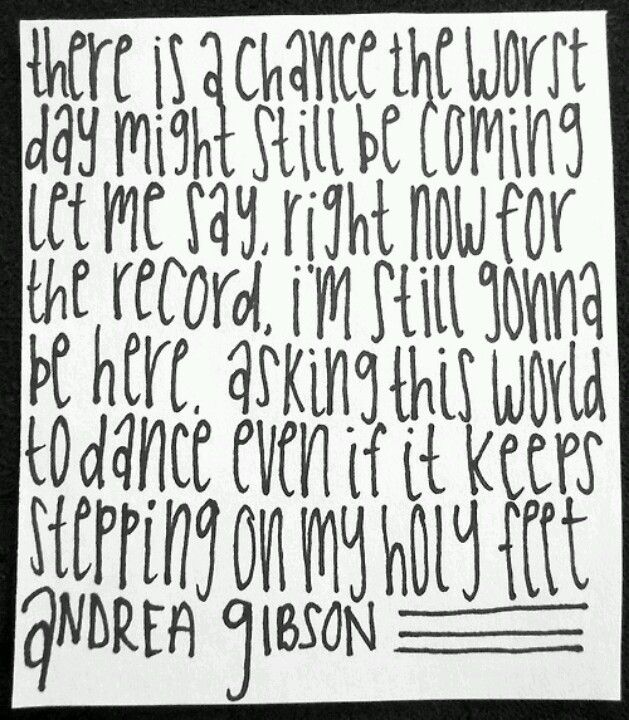 there is a chance the worst
day might still be coming
let me say, right now for
the record, i'm still gonna
be here. asking this world
to dance even if it keeps
stepping on my holy feet
aNDREA gIBSON